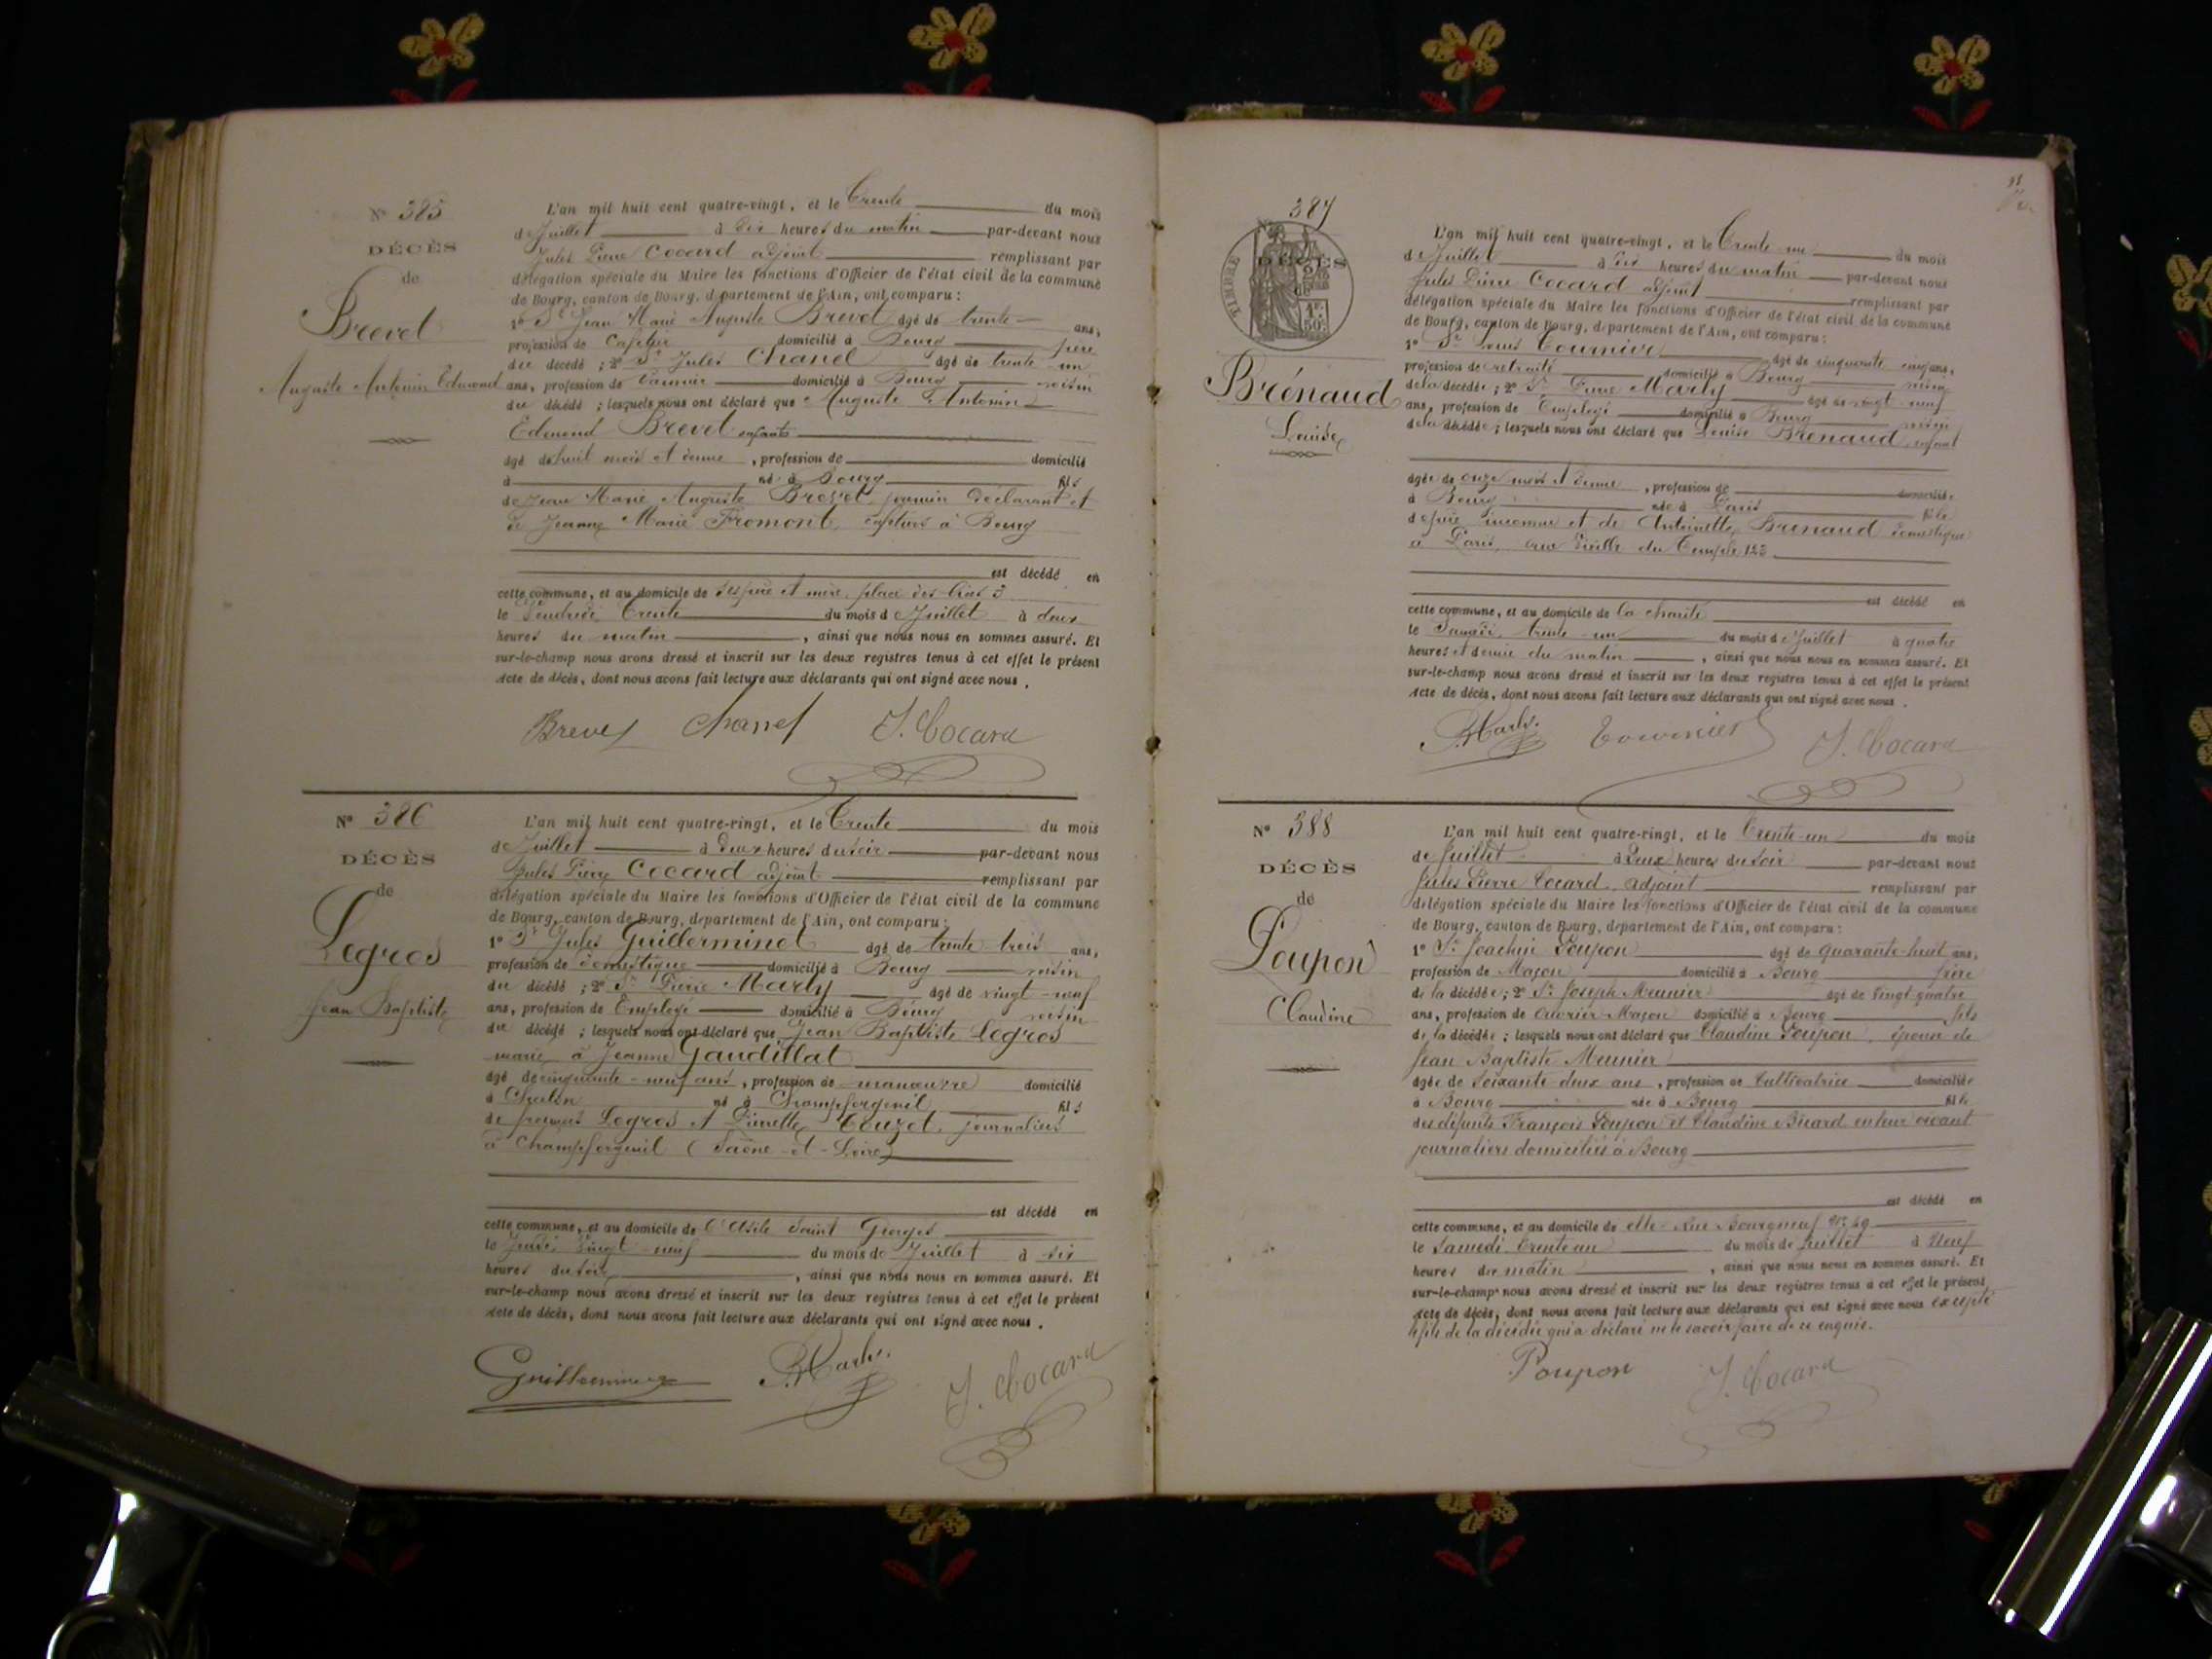 Nº 385
DÉCÈS
de
Brevet
Auguste Antonin Edmond
L'an mil huit cent quatre-vingt, et le Trente du mois
de Juillet à dix heures du matin par-devant nous
Jules Pierre Cocard adjoint remplissant par
délégation spéciale du Maire les fonctions d'Officier de l'état civil de la commune
de Bourg, canton de Bourg, département de l'Ain, ont comparu :
1º Sr Jean Marie Auguste Brevet âgé de trente ans,
profession de Cafetier domicilié à Bourg père
du décédé ; 2º Sr Jules Chanel âgé de trente-un
ans, profession de domicilié à Bourg voisin
du décédé ; lesquels nous ont déclaré que Auguste Antonin
Edmond Brevet enfant
âgé de huit mois et demi, profession de domicilié
à né à Bourg fils
de Jean Marie Auguste Brevet, premier déclarant et
de Jeanne Marie Fromont, cafetiers à Bourg
est décédé en
cette commune, et au domicile de ses père et mère, place des 3
le Vendredi Trente du mois de Juillet à deux
heures du matin, ainsi que nous nous en sommes assuré. Et
sur-le-champ nous avons dressé et inscrit sur les deux registres tenus à cet effet le présent
Acte de décès, dont nous avons fait lecture aux déclarants qui ont signé avec nous.
Brevet Chanel J. Cocard
Nº 386
DÉCÈS
de
Legros
Jean Baptiste
L'an mil huit cent quatre-vingt, et le Trente du mois
de Juillet à deux heures du soir par-devant nous
Jules Pierre Cocard adjoint remplissant par
délégation spéciale du Maire les fonctions d'Officier de l'état civil de la commune
de Bourg, canton de Bourg, département de l'Ain, ont comparu :
1º Sr Jules Guillerminet âgé de trente-trois ans,
profession de domestique domicilié à Bourg voisin
du décédé ; 2º Sr Pierre Marly âgé de vingt-neuf
ans, profession de Employé domicilié à Bourg voisin
du décédé ; lesquels nous ont déclaré que Jean Baptiste Legros
marié à Jeanne Gaudillat
âgé de cinquante-neuf ans, profession de manœuvre domicilié
à Chalon né à Champforgeuil fils
de Legros et Pierrette Couzet, journaliers
à Champforgeuil (Saône-et-Loire)
est décédé en
cette commune, et au domicile de l'Asile Saint Georges
le Jeudi Vingt-neuf du mois de Juillet à six
heures du soir, ainsi que nous nous en sommes assuré. Et
sur-le-champ nous avons dressé et inscrit sur les deux registres tenus à cet effet le présent
Acte de décès, dont nous avons fait lecture aux déclarants qui ont signé avec nous.
Guillerminet P. Marly J. Cocard
387
TIMBRE
DÉCÈS
de
1F.
50c
Brénaud
Louise
L'an mil huit cent quatre-vingt, et le Trente-un du mois
de Juillet à dix heures du matin par-devant nous
Jules Pierre Cocard adjoint remplissant par
délégation spéciale du Maire les fonctions d'Officier de l'état civil de la commune
de Bourg, canton de Bourg, département de l'Ain, ont comparu :
1º Sr Louis Tournier âgé de cinquante cinq ans,
profession de retraité domicilié à Bourg voisin
de la décédée ; 2º Sr Pierre Marly âgé de vingt-neuf
ans, profession de Employé domicilié à Bourg voisin
de la décédée ; lesquels nous ont déclaré que Louise Brénaud enfant
âgée de onze mois et demi, profession de domiciliée
à Bourg née à Paris fille
de père inconnu et de Antoinette Brénaud domestique
à Paris, rue Vieille du Temple 123
est décédé en
cette commune, et au domicile de la charité
le Samedi trente-un du mois de Juillet à quatre
heures et demie du matin, ainsi que nous nous en sommes assuré. Et
sur-le-champ nous avons dressé et inscrit sur les deux registres tenus à cet effet le présent
Acte de décès, dont nous avons fait lecture aux déclarants qui ont signé avec nous.
P. Marly Tournier J. Cocard
Nº 388
DÉCÈS
de
Poupon
Claudine
L'an mil huit cent quatre-vingt, et le Trente-un du mois
de Juillet à Deux heures du soir par-devant nous
Jules Pierre Cocard, adjoint remplissant par
délégation spéciale du Maire les fonctions d'Officier de l'état civil de la commune
de Bourg, canton de Bourg, département de l'Ain, ont comparu :
1º Sr Joachin Poupon âgé de quarante-huit ans,
profession de Maçon domicilié à Bourg frère
de la décédée ; 2º Sr Joseph Meunier âgé de vingt-quatre
ans, profession de Ouvrier Maçon domicilié à Bourg fils
de la décédée ; lesquels nous ont déclaré que Claudine Poupon, épouse de
Jean Baptiste Meunier
âgée de Soixante-deux ans, profession de Cultivatrice domiciliée
à Bourg née à Bourg fille
des défunts François Poupon et Claudine en leur vivant
journaliers domiciliés à Bourg
est décédé en
cette commune, et au domicile de elle rue Bourgneuf nº 49
le Samedi Trente un du mois de Juillet à Neuf
heures du matin, ainsi que nous nous en sommes assuré. Et
sur-le-champ nous avons dressé et inscrit sur les deux registres tenus à cet effet le présent
Acte de décès, dont nous avons fait lecture aux déclarants qui ont signé avec nous excepté
le fils de la décédée qui a déclaré ne le savoir faire de ce enquis.
Poupon J. Cocard